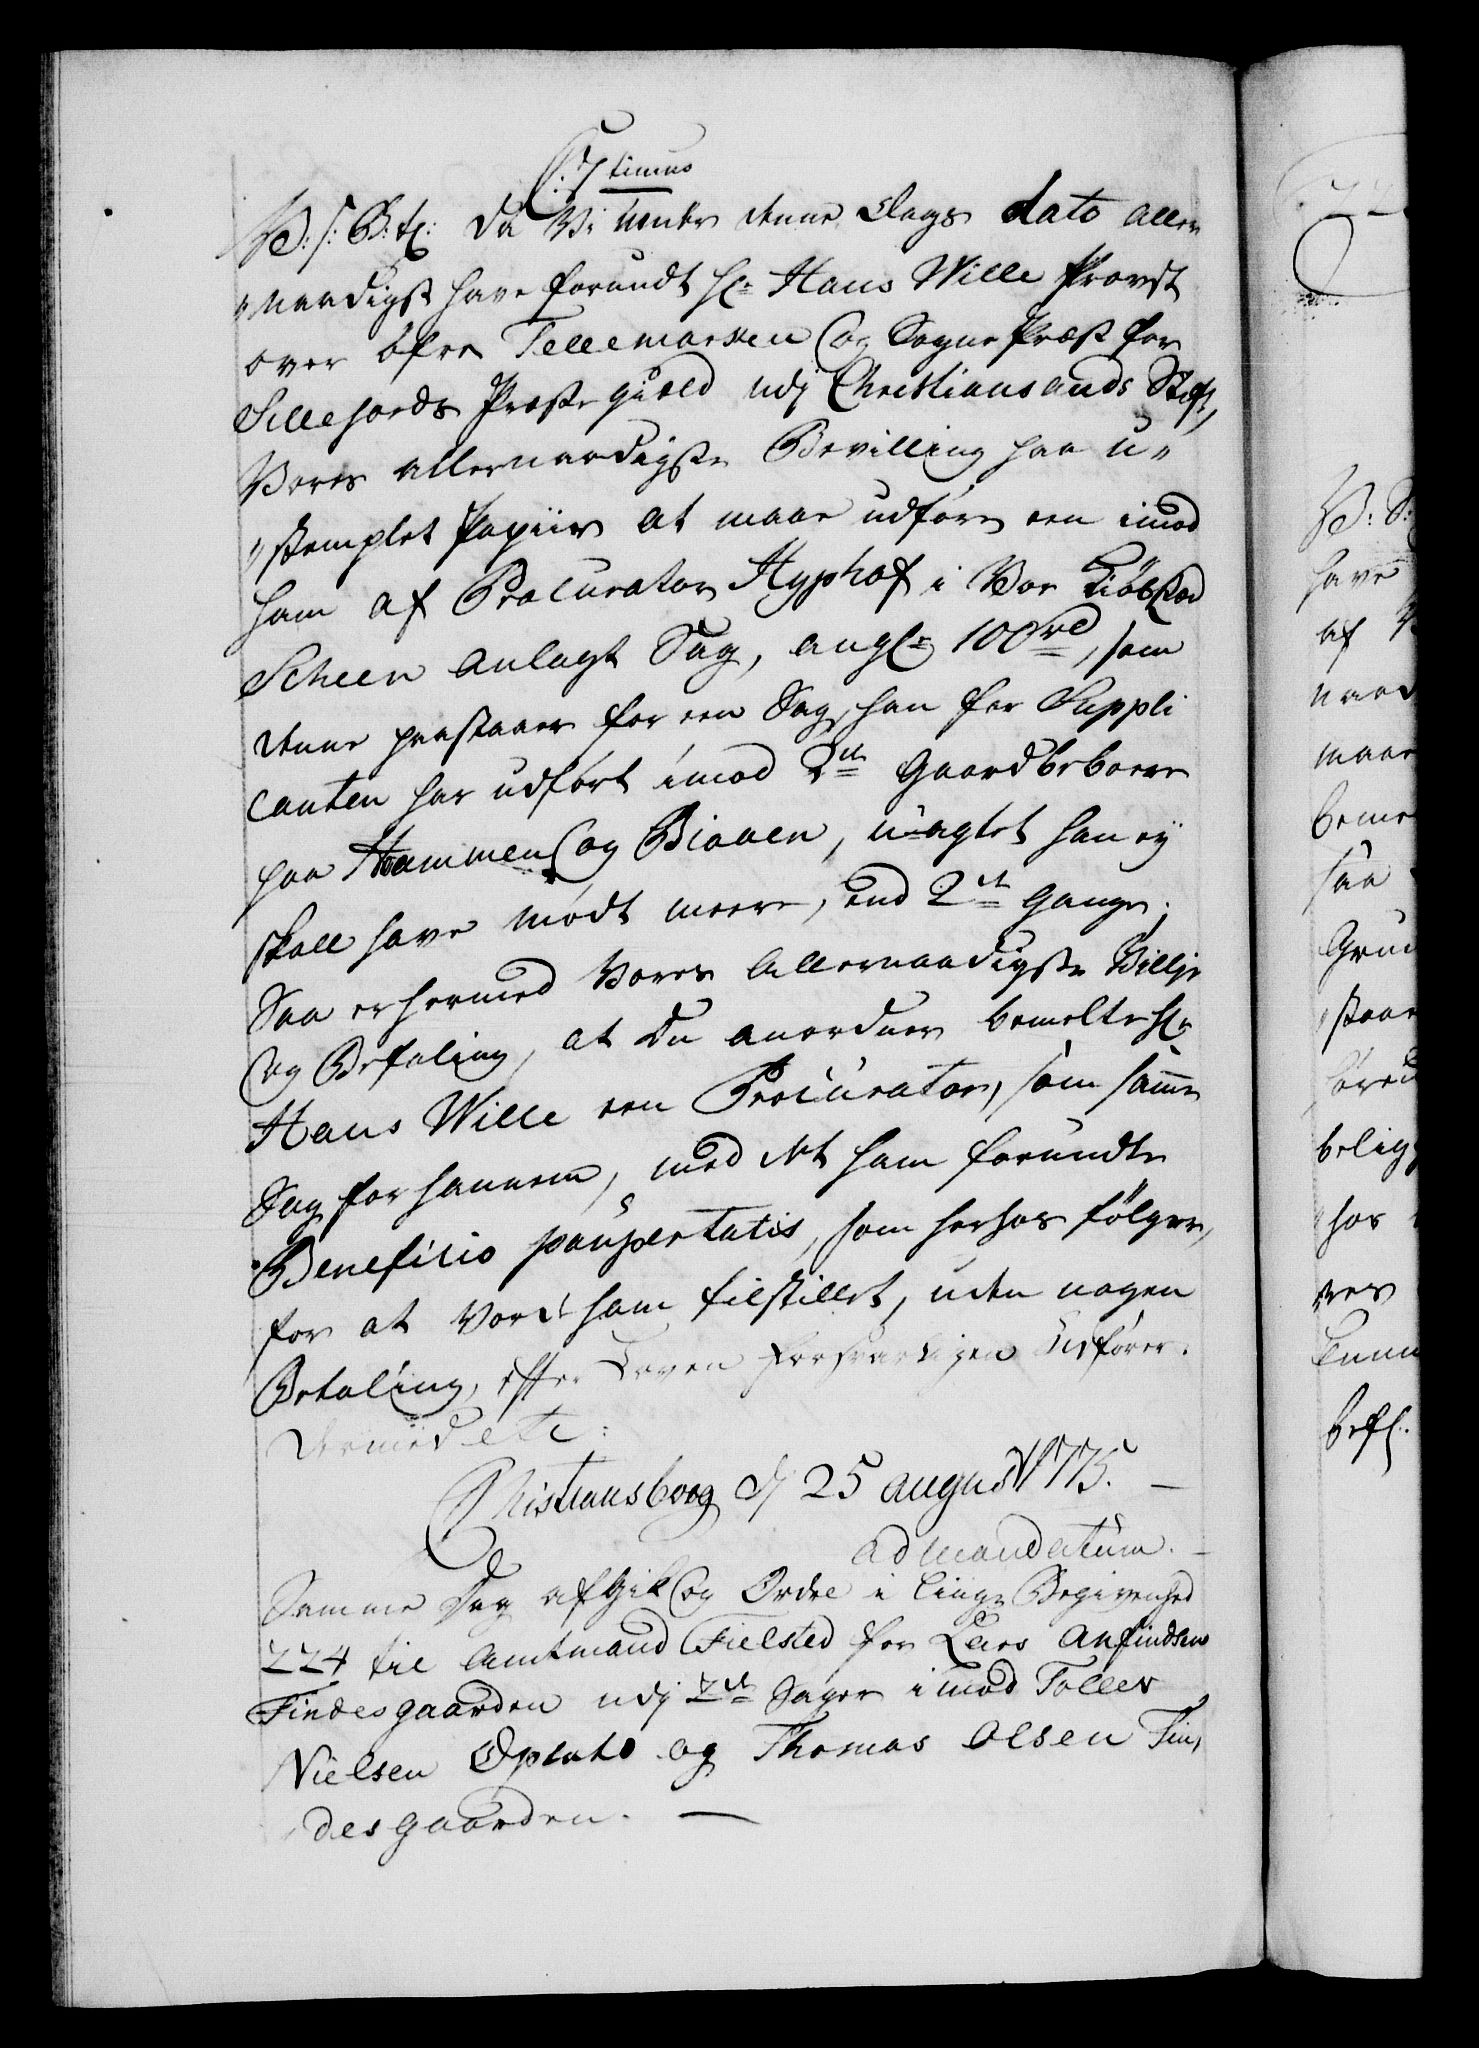 C: 7timus
V: S: G: T: Da Vi under denne Dags dato aller
naadigst have forundt Hr: Hans Wille Provst
over öfre Tellemarken og Sogne Præst for
Sillejords Præstegield udj Christiansands Stift,
Vores allernaadigste Bevilling paa u-
stemplet Papiir at maae udföre een imod
ham af Procurator Hyphof i Vor Kiöbstad
Scheen anlagt Sag, angl: 100 rd, som
denne paastaaer for een Sag, han for Suppli
canten har udfört imod 2de Gaardbeboere
paa Hammen og Biaaen, uagtet han ej
skall have mödt meere, end 2de Gange;
Saa er hermed Vores Allernaadigste Villje
og Befaling, at Du anordner bemelte Hr:
Hans Wille een Procurator, som samme
Sag for hannem, med det ham forundte
Beneficio paupertatis, som herhos fölger,
for at vorde ham tilstillet, uden nogen
Betaling, efter Loven forsvarligen Udförer.
Dermed etc:
Christiansborg d 25 august 1775. —
ad mandatum. —
Samme Dag afgik og Ordre i liige Begivenhed
224 til Amtmand Fielsted for Lars Anfindsen
Findesgaarden udj 2de Sager imod Tollev
Nielsen Oplahd og Thomas Olsen Fin,
desgaarden. —
have
af
maae
saa
Grun
belig
hos
befl.